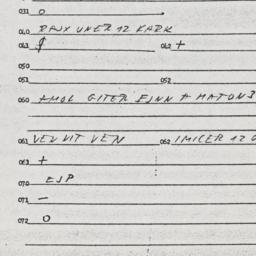 032 O
040 RAJX UNER 12 KARK
041 $ 042 +
050
051 052
060 AMOL GITER FJNN A MATONS
061 VEV VIT VEN 062 IMICER 12
063 +
070 EJP
071 —
072 O